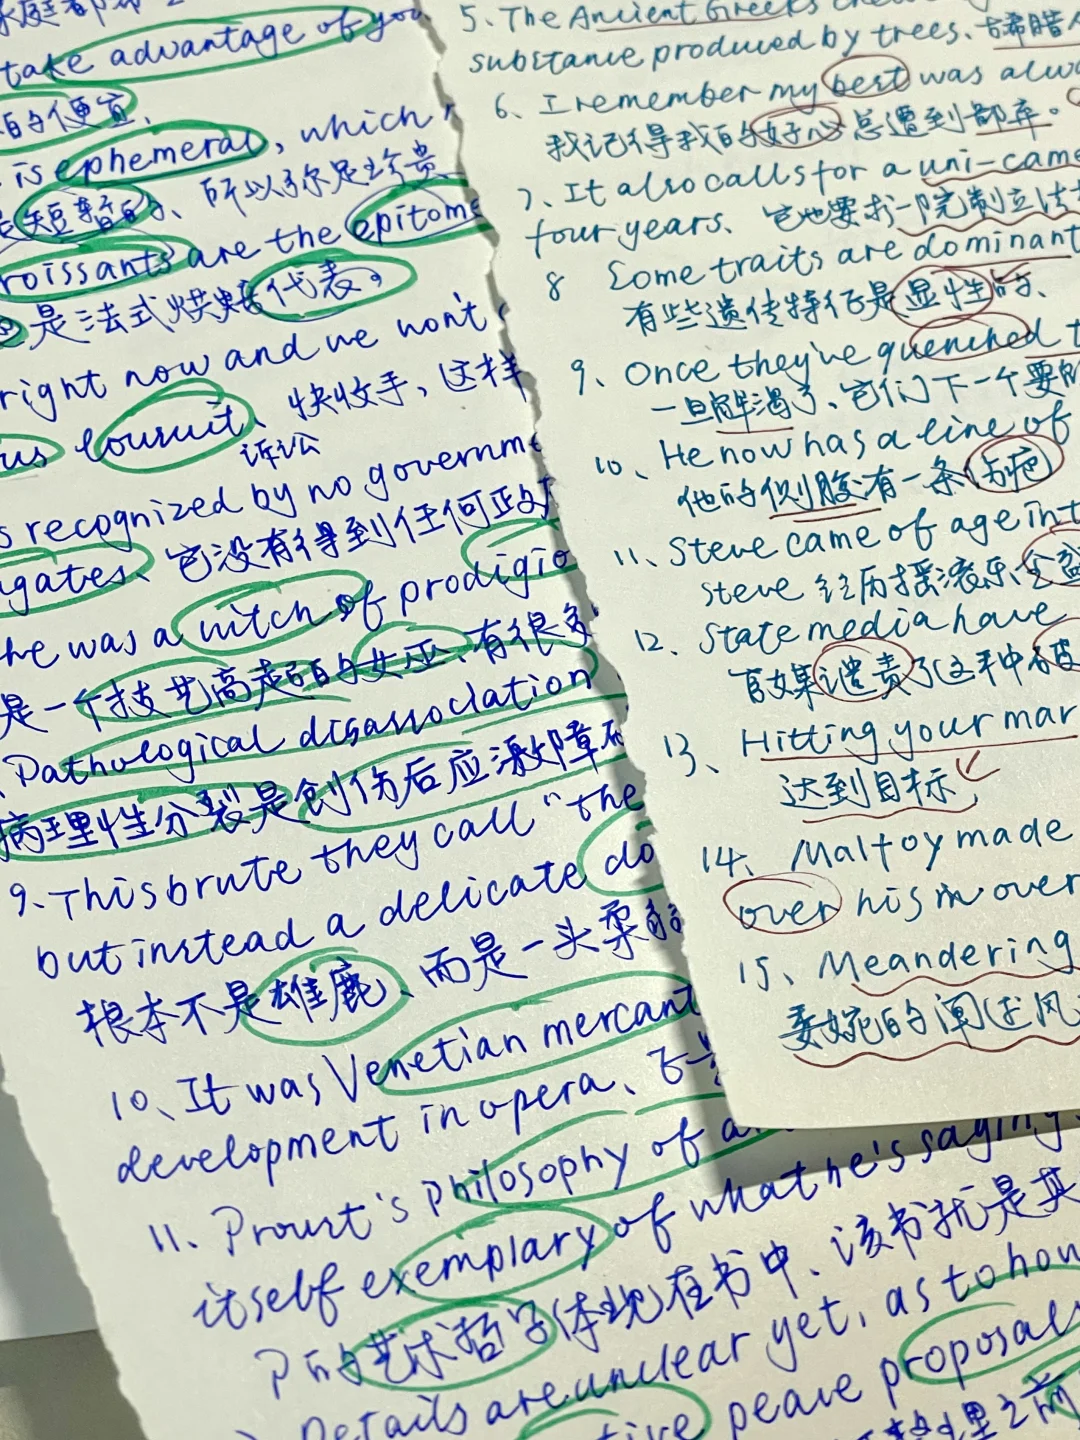 take advantage of you
的便宜、
is ephemeral, which
是短暂的、所以弥足珍贵
roissants are the epitome
是法式烘焙代表。
right now and we wont
us lawsuit、快收手，这样
诉讼
s recognized by no governm
gates、它没有得到任何政府
he was a witch of prodigio
是一个技艺高超的女巫、有很多
Pathological disassociation
病理性分裂是创伤后应激障碍
9. This brute they call "the
but instead a delicate do
根本不是雄鹿、而是一头柔
10、It was Venetian mercant
development in opera、
11、Proust's philosophy of a
itself exemplary of what he's saying
P的艺术哲学体现在书中、该书就是其
Details are unclear yet, as to how
tive peace proposals
5、The Ancient Greeks
substance produced by trees、古希腊人
6、I remember my best was alwa
我记得我的好心总遭到鄙弃。
7、It also calls for a uni-came
four years、它也要求一院制立法
8 Some traits are dominant
有些遗传特征是显性的、
9、Once they've quenched t
一旦解渴了、它们下一个要
10、He now has a line of
他的侧腹有一条伤疤
11、Steve came of age int
Steve 经历摇滚乐全盛
12、State media have
官媒谴责了这种破
13、Hitting your mar
达到目标
14、Malfoy made
over his m over
15、Meandering
委婉的阐述风